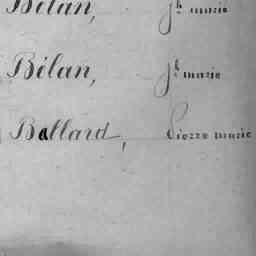 Bélan, Jh marie
Bélan, Jh marie
Ballard, Pierre marie